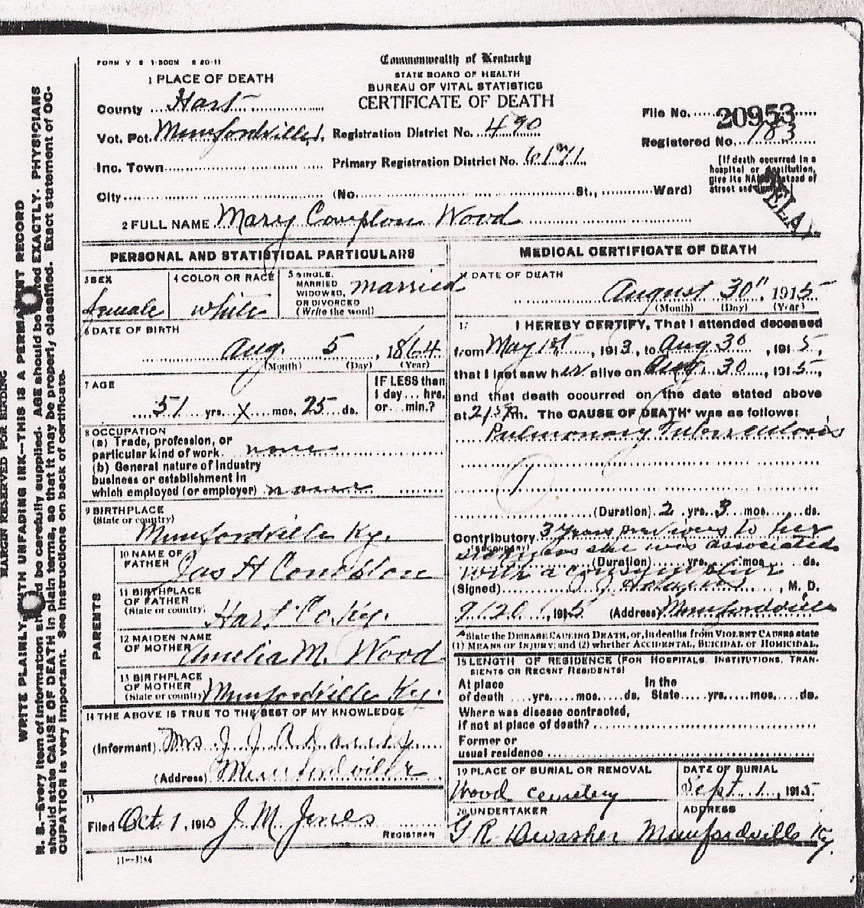 FORM V S 1-500M 6 20-11
Commonwealth of Kentucky
STATE BOARD OF HEALTH
BUREAU OF VITAL STATISTICS
CERTIFICATE OF DEATH
1 PLACE OF DEATH
County Hart
Vot. Pct. Munfordville
Inc. Town
City
Registration District No. 490
Primary Registration District No. 6171
(No. St., Ward)
File No. 20953
Registered No. 183
[If death occurred in a hospital or institution, give its NAME instead of street and number.]
2 FULL NAME Mary Compton Wood
PERSONAL AND STATISTICAL PARTICULARS
3 SEX female
4 COLOR OR RACE white
5 SINGLE, MARRIED WIDOWED, OR DIVORCED (Write the word) married
6 DATE OF BIRTH
Aug. 5, 1864
(Month) (Day) (Year)
7 AGE
51 yrs. X mos. 25 ds.
IF LESS than 1 day... hrs. or... min.?
8 OCCUPATION
(a) Trade, profession, or particular kind of work none
(b) General nature of industry business or establishment in which employed (or employer) none
9 BIRTHPLACE
(State or country)
Munfordville Ky.
PARENTS
10 NAME OF FATHER Jas H Compton
11 BIRTHPLACE OF FATHER (State or country) Hart Co Ky.
12 MAIDEN NAME OF MOTHER Amelia M. Wood
13 BIRTHPLACE OF MOTHER (State or country) Munfordville Ky.
14 THE ABOVE IS TRUE TO THE BEST OF MY KNOWLEDGE
(Informant) Mrs J. J.
(Address) Munfordville
15
Filed Oct. 1, 1915 J. M. Jones
REGISTRAR
11-3184
MEDICAL CERTIFICATE OF DEATH
16 DATE OF DEATH
August 30", 1915
(Month) (Day) (Year)
17 I HEREBY CERTIFY, That I attended deceased
from May 1st, 1913, to Aug 30, 1915,
that I last saw her alive on Aug. 30, 1915,
and that death occurred on the date stated above
at m. The CAUSE OF DEATH* was as follows:
Pulmonary Tuberculosis
(Duration) 2 yrs. 3 mos. ds.
Contributory 3 years previous to her
(SECONDARY) sickness she was associated
(Duration) yrs. mos. ds.
with a consumptive
(Signed) , M. D.
9/20 1915 (Address) Munfordville
*State the DISEASE CAUSING DEATH, or, in deaths from VIOLENT CAUSES state
(1) MEANS OF INJURY; and (2) whether ACCIDENTAL, SUICIDAL OR HOMICIDAL.
18 LENGTH OF RESIDENCE (FOR HOSPITALS, INSTITUTIONS, TRANSIENTS OR RECENT RESIDENTS)
At place of death yrs. mos. ds. In the State yrs. mos. ds.
Where was disease contracted, if not at place of death?
Former or usual residence
19 PLACE OF BURIAL OR REMOVAL
Wood cemetery
DATE OF BURIAL
Sept. 1, 1915
20 UNDERTAKER
G R Dewasher
ADDRESS
Munfordville Ky.
MARGIN RESERVED FOR BINDING
WRITE PLAINLY WITH UNFADING INK—THIS IS A PERMANENT RECORD
N. B.—Every item of information should be carefully supplied. AGE should be stated EXACTLY. PHYSICIANS
should state CAUSE OF DEATH in plain terms, so that it may be properly classified. Exact statement of OC-
CUPATION is very important. See instructions on back of certificate.